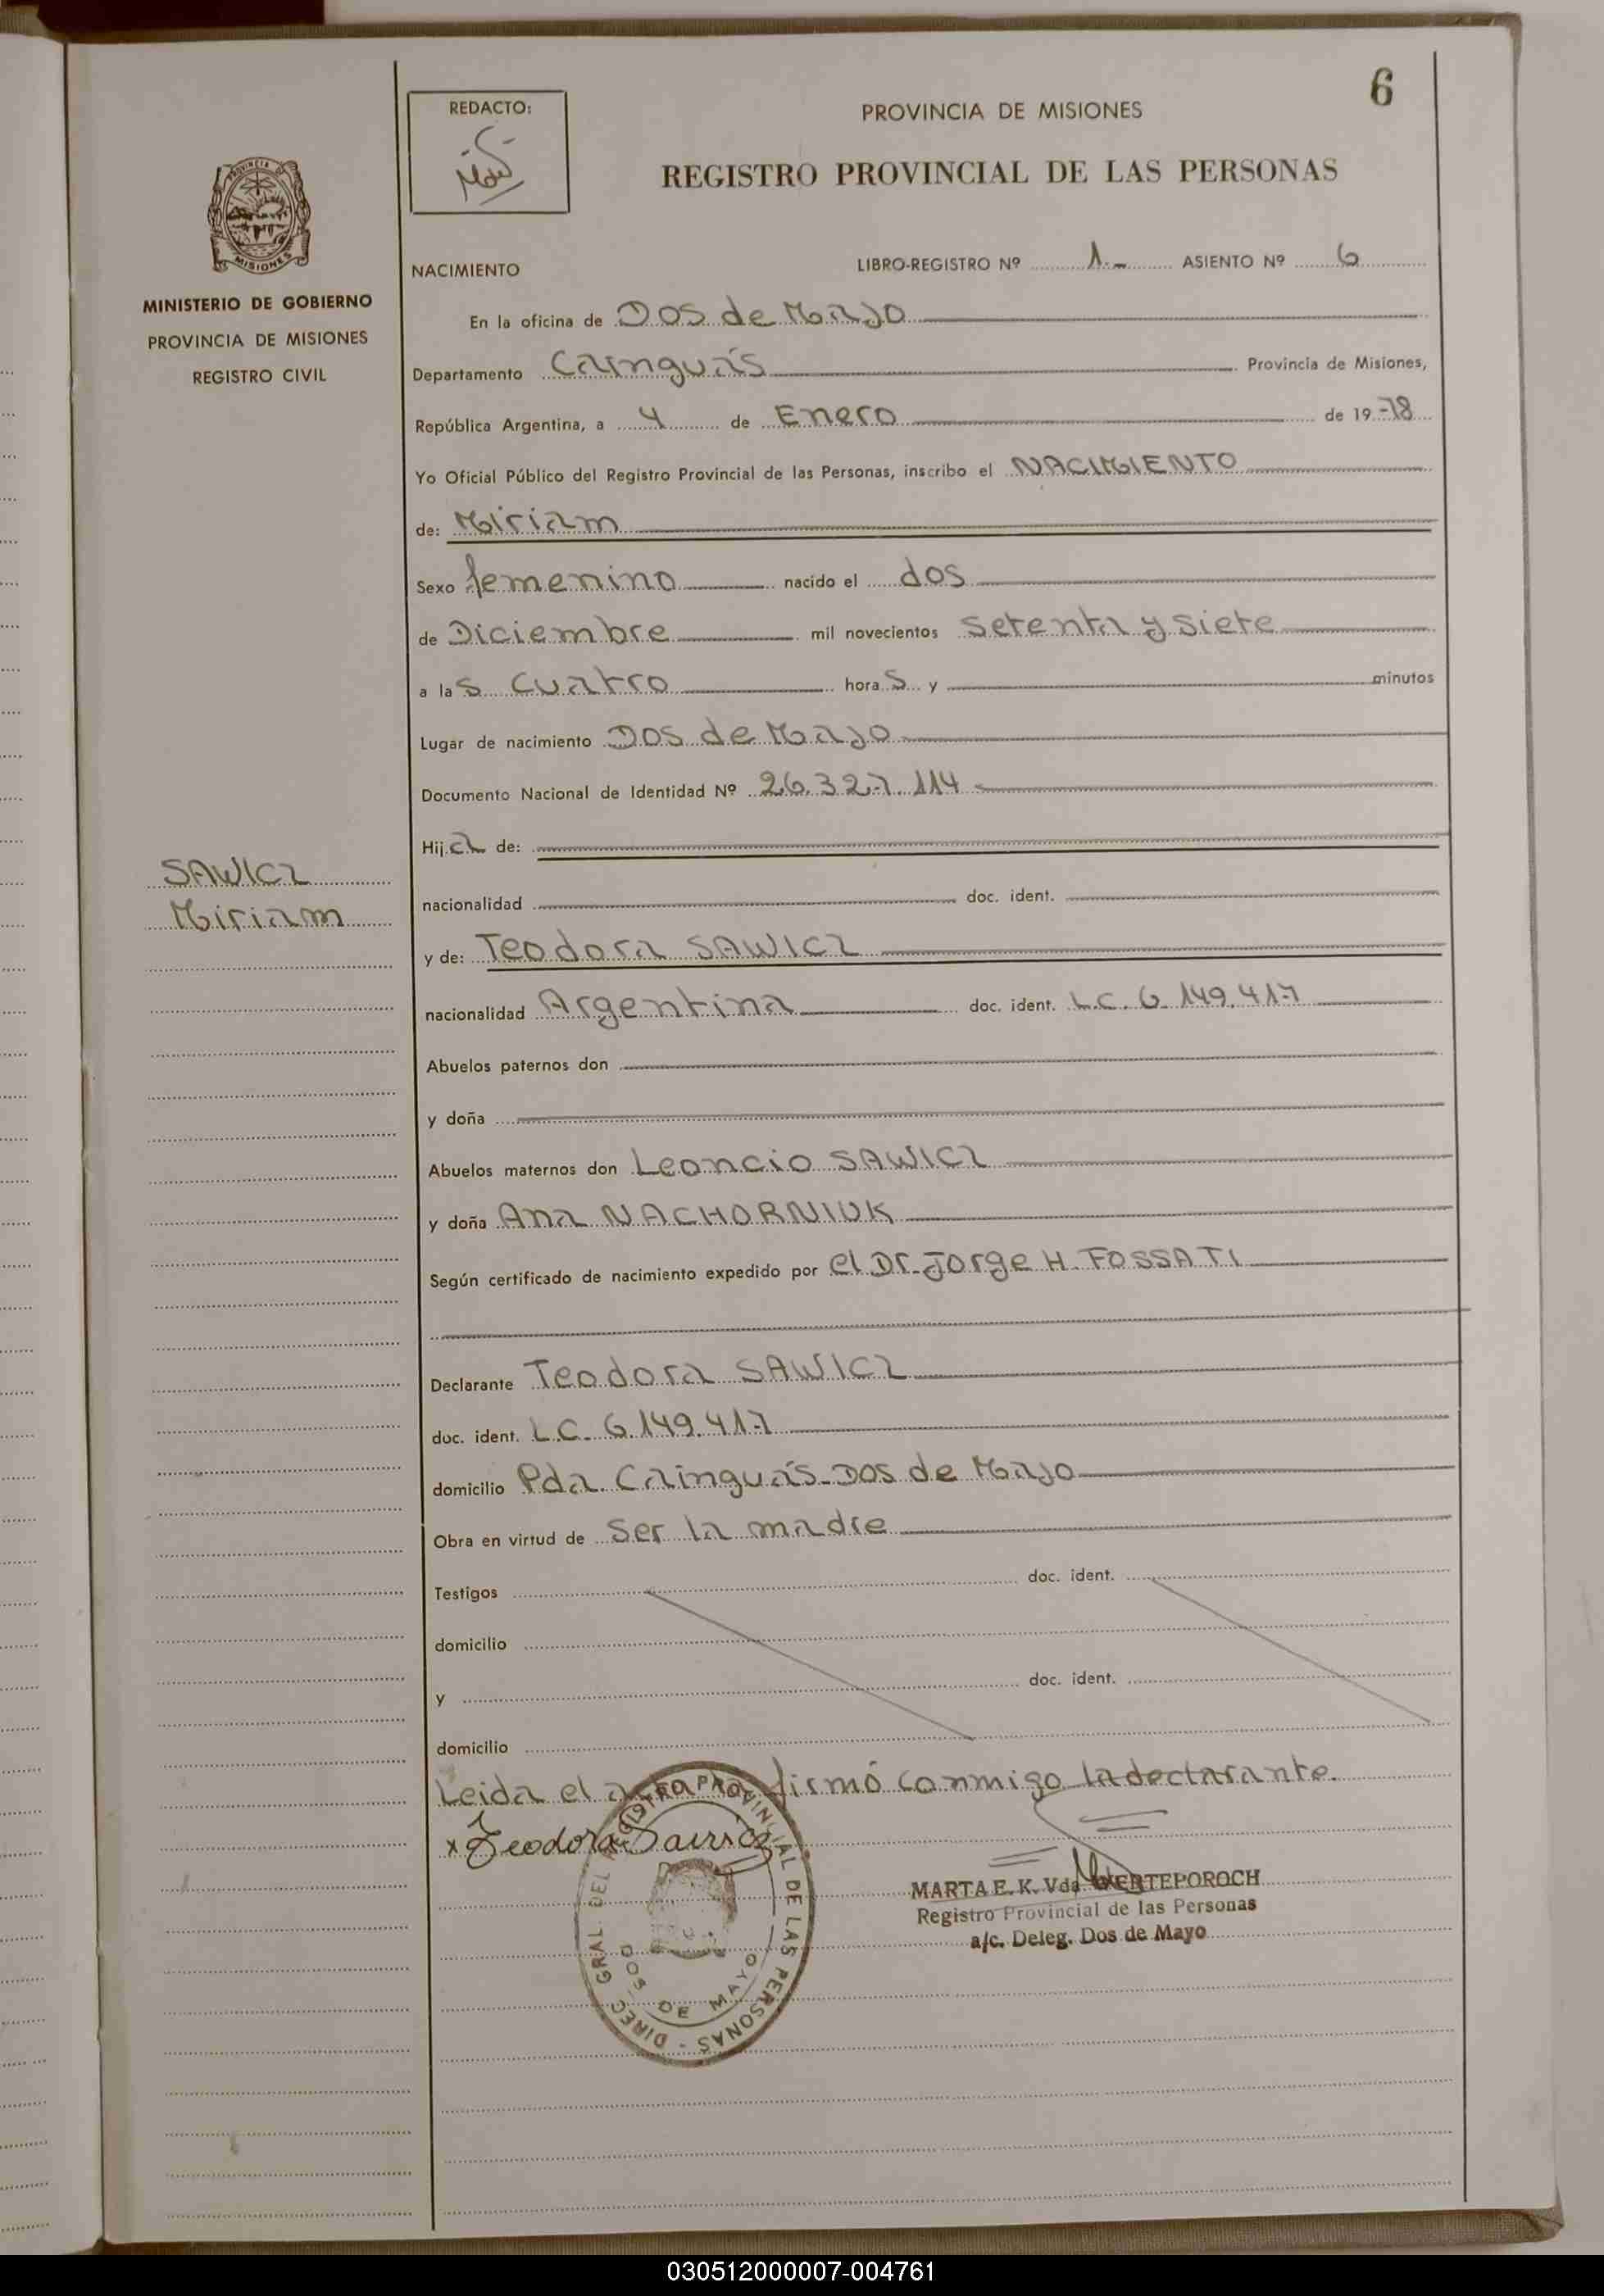 6
REDACTO:
PROVINCIA DE MISIONES
REGISTRO PROVINCIAL DE LAS PERSONAS
PROVINCIA DE
MISIONES
MINISTERIO DE GOBIERNO
PROVINCIA DE MISIONES
REGISTRO CIVIL
NACIMIENTO
LIBRO-REGISTRO Nº 1.- ASIENTO Nº 6
En la oficina de Dos de Mayo
Departamento Cainguás Provincia de Misiones,
República Argentina, a 4 de Enero de 19-78
Yo Oficial Público del Registro Provincial de las Personas, inscribo el NACIMIENTO
de: Miriam
Sexo femenino nacido el dos
de Diciembre mil novecientos setenta y siete
a las cuatro horas y minutos
Lugar de nacimiento Dos de Mayo
Documento Nacional de Identidad Nº 26.327.114
Hija de:
nacionalidad doc. ident.
SAWICZ
Miriam
y de: Teodora SAWICZ
nacionalidad Argentina doc. ident. L.C. 6.149.417
Abuelos paternos don
y doña
Abuelos maternos don Leoncio SAWICZ
y doña Ana NACHORNIUK
Según certificado de nacimiento expedido por el Dr. Jorge H. FOSSATI
Declarante Teodora SAWICZ
doc. ident. L.C. 6.149.417
domicilio Pda. Cainguás-Dos de Mayo
Obra en virtud de ser la madre
Testigos doc. ident.
domicilio
y doc. ident.
domicilio
Leida el acta firmó conmigo la declarante.
x Teodora Sawicz
MARTA E. K. Vda WERTEPOROCH
Registro Provincial de las Personas
a/c. Deleg. Dos de Mayo
DIREC. GRAL. DEL REGISTRO PROVINCIAL DE LAS PERSONAS -
DOS DE MAYO
030512000007-004761